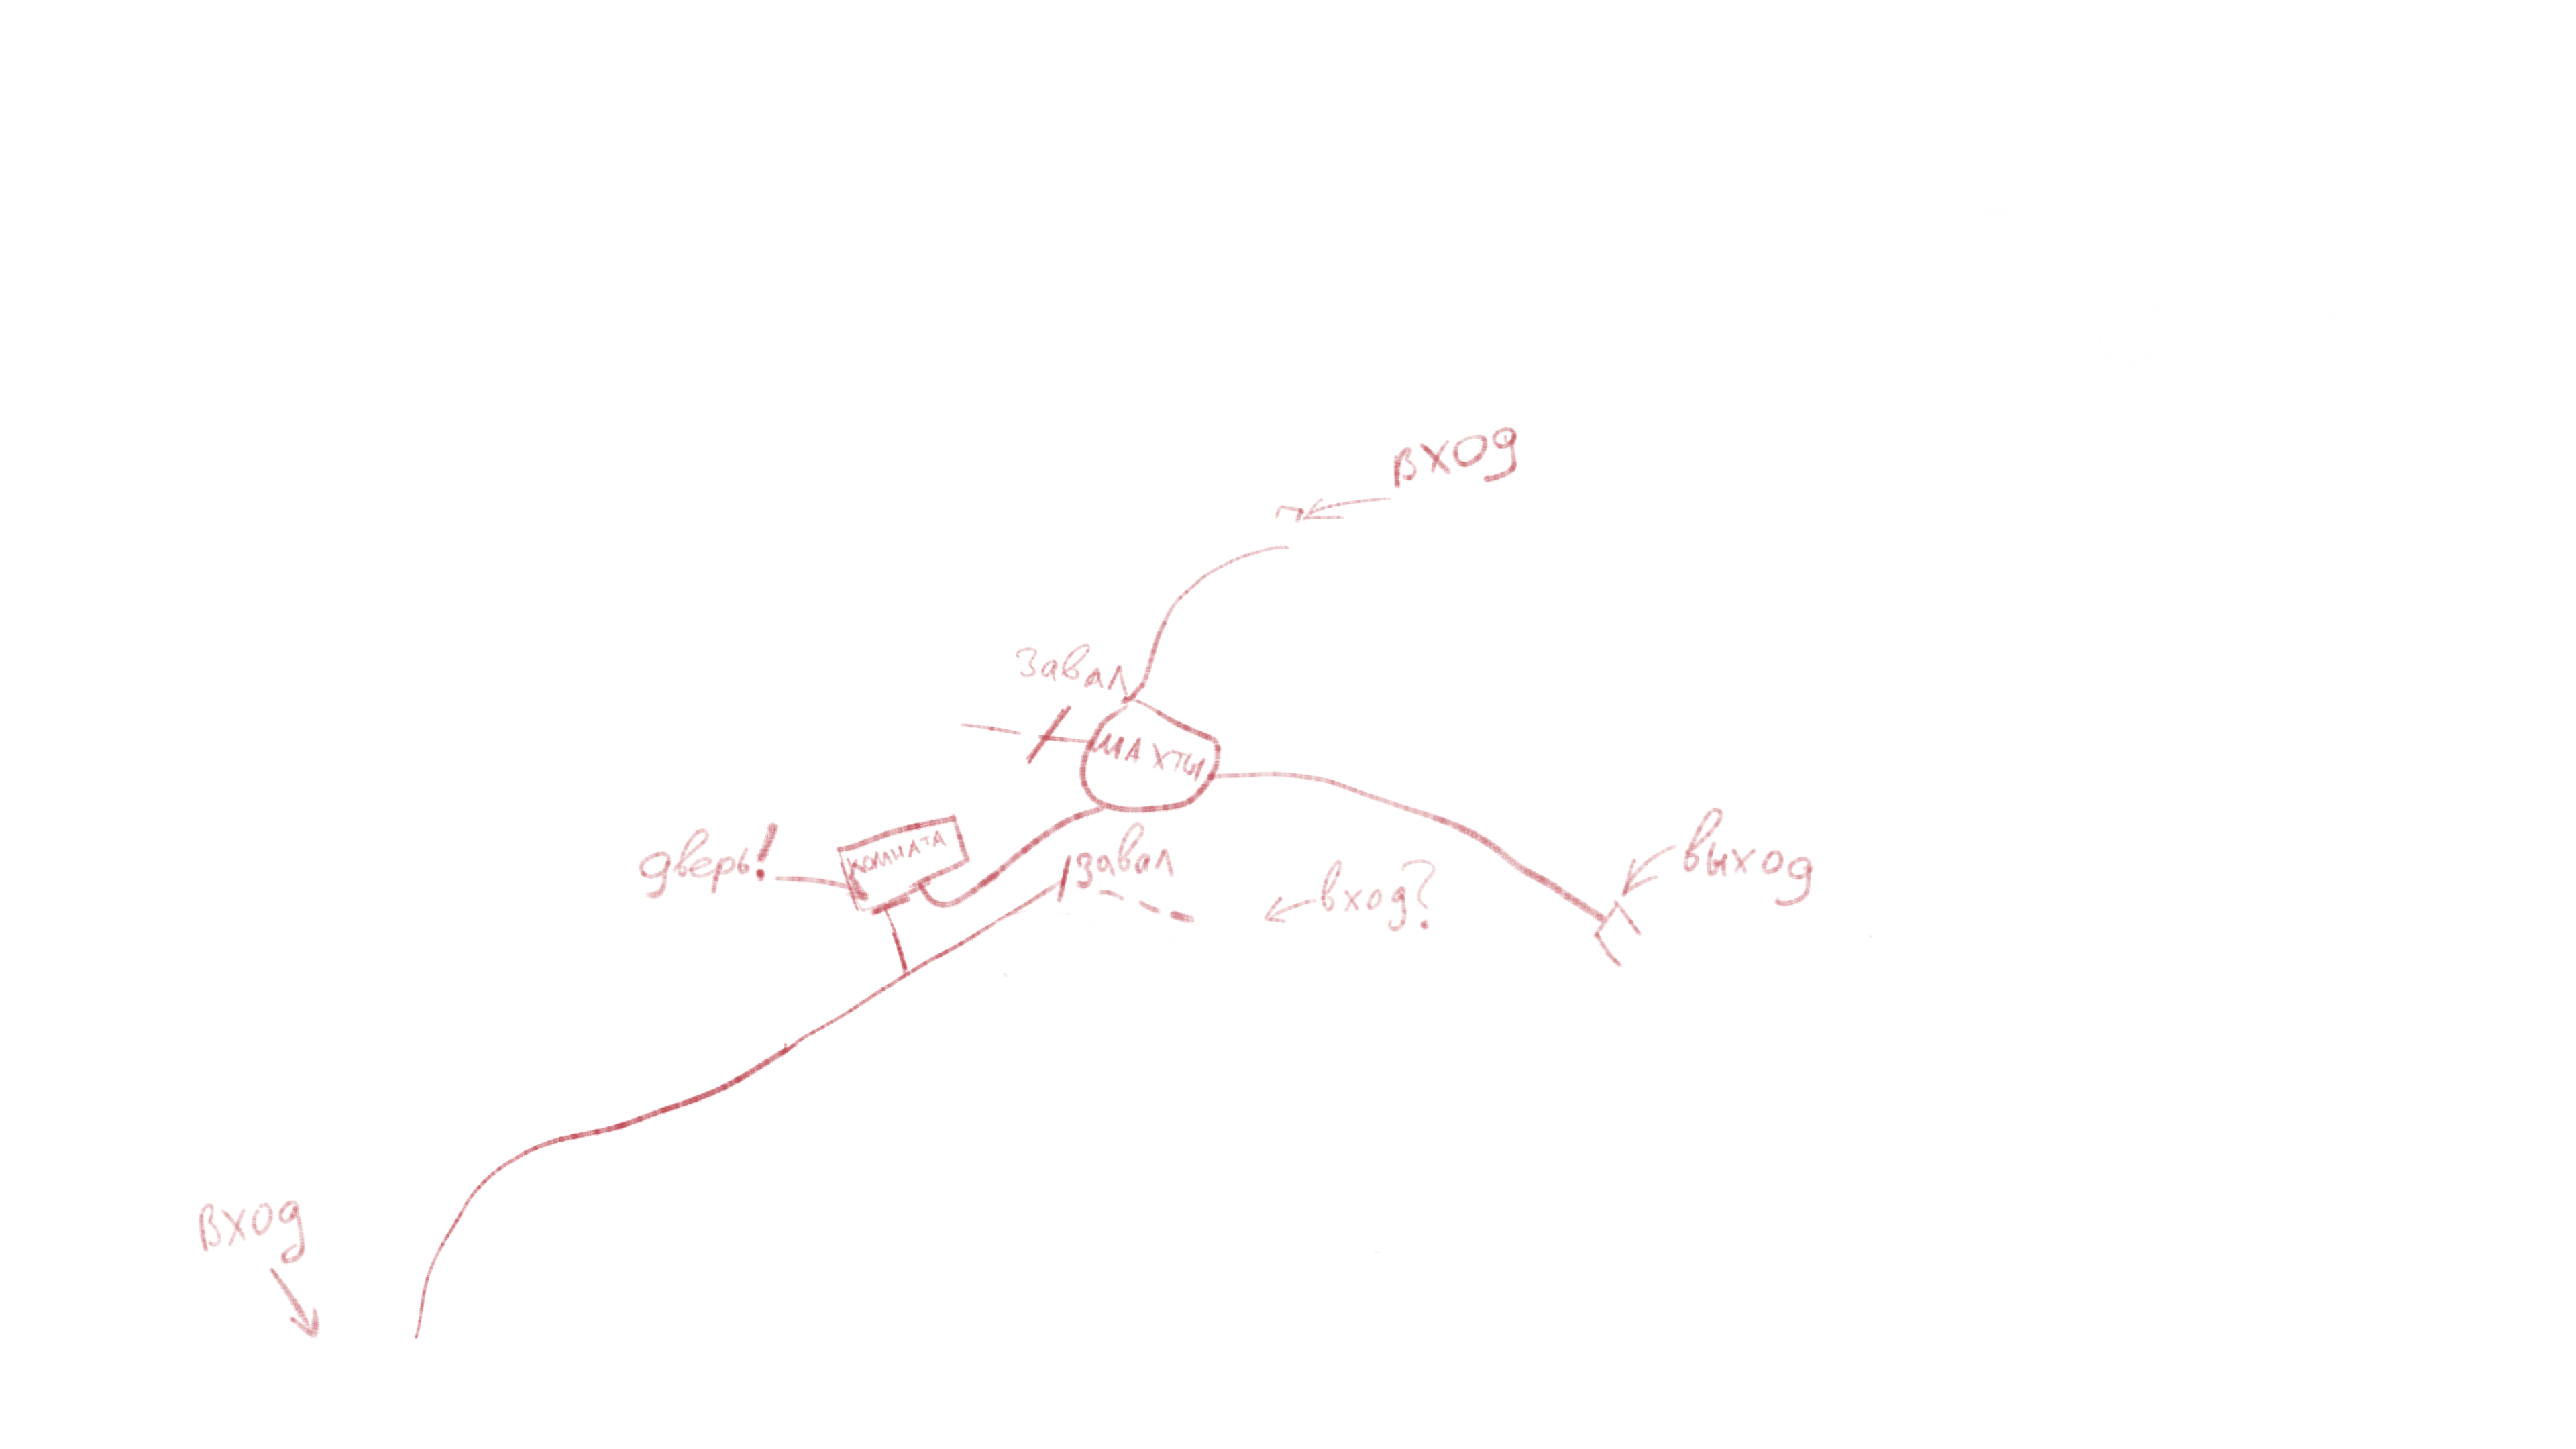 вход
завал
шахты
дверь!
комната
завал
вход?
выход
вход